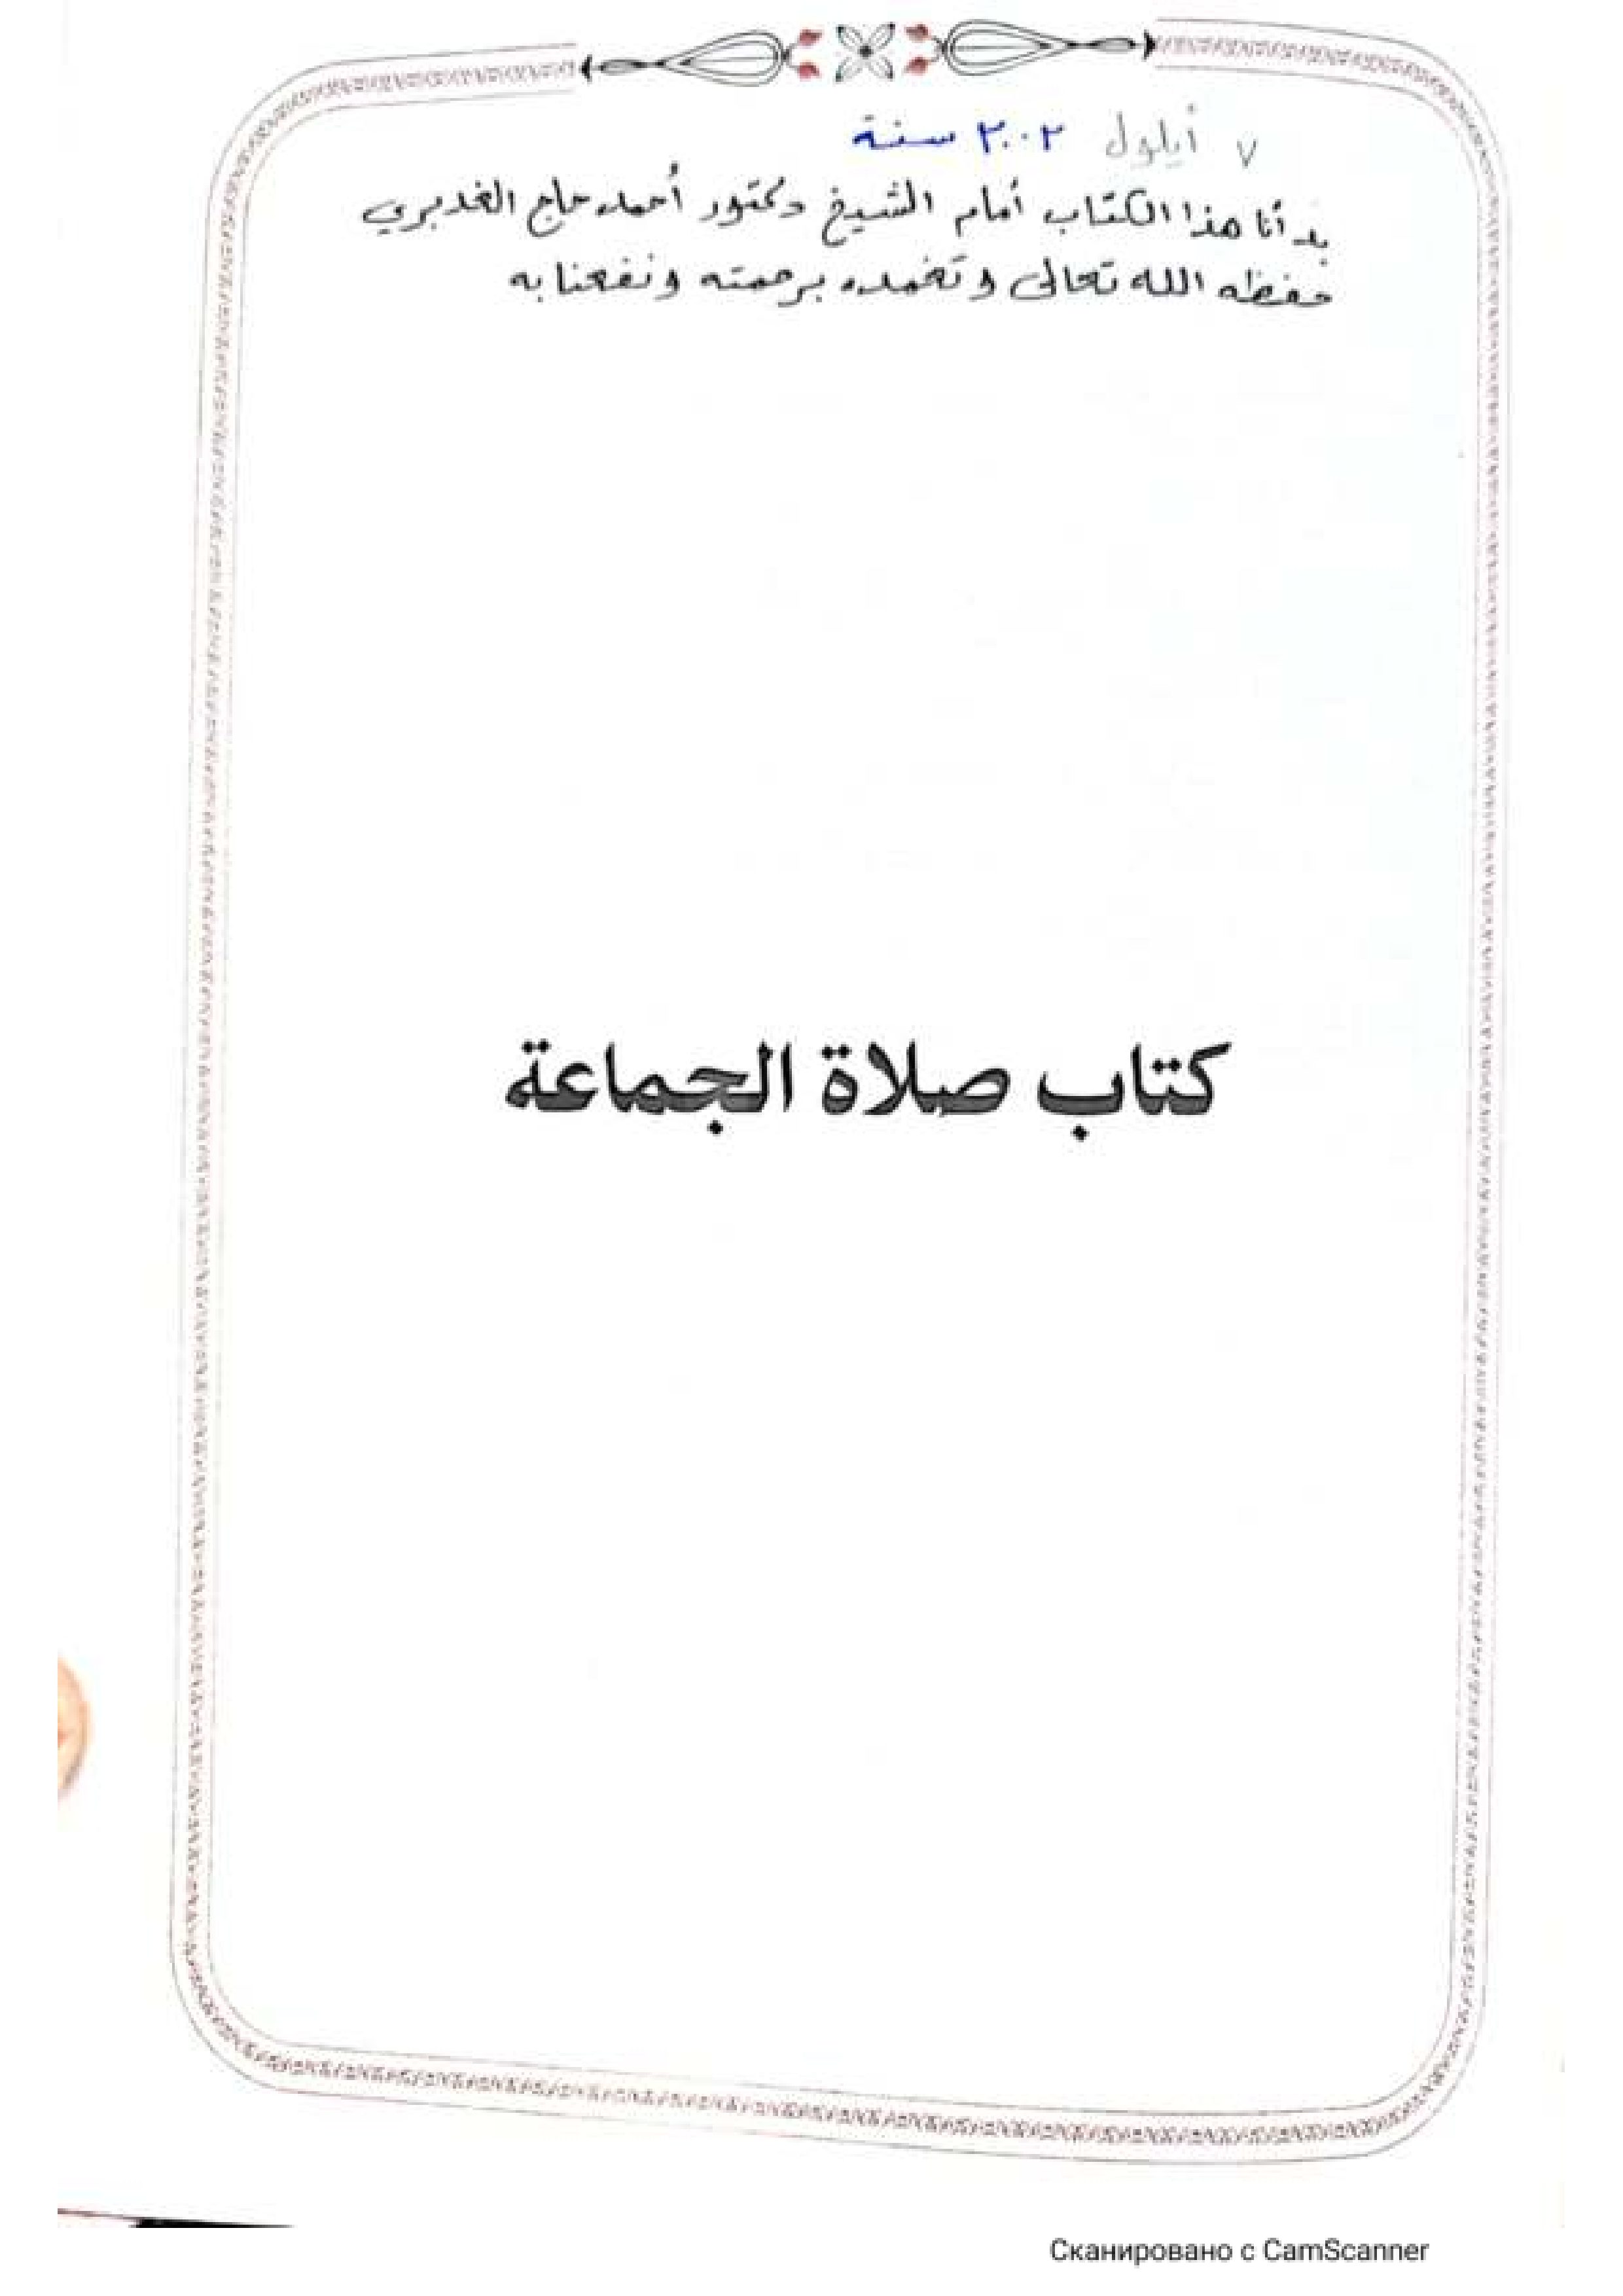 ٧ أيلول ٢٠٠٢ سنة
بدأنا هذا الكتاب أمام الشيخ دكتور أحمد حاج الغديري
حفظه الله تعالى وتغمده برحمته ونفعنا به
كتاب صلاة الجماعة
Сканировано с CamScanner